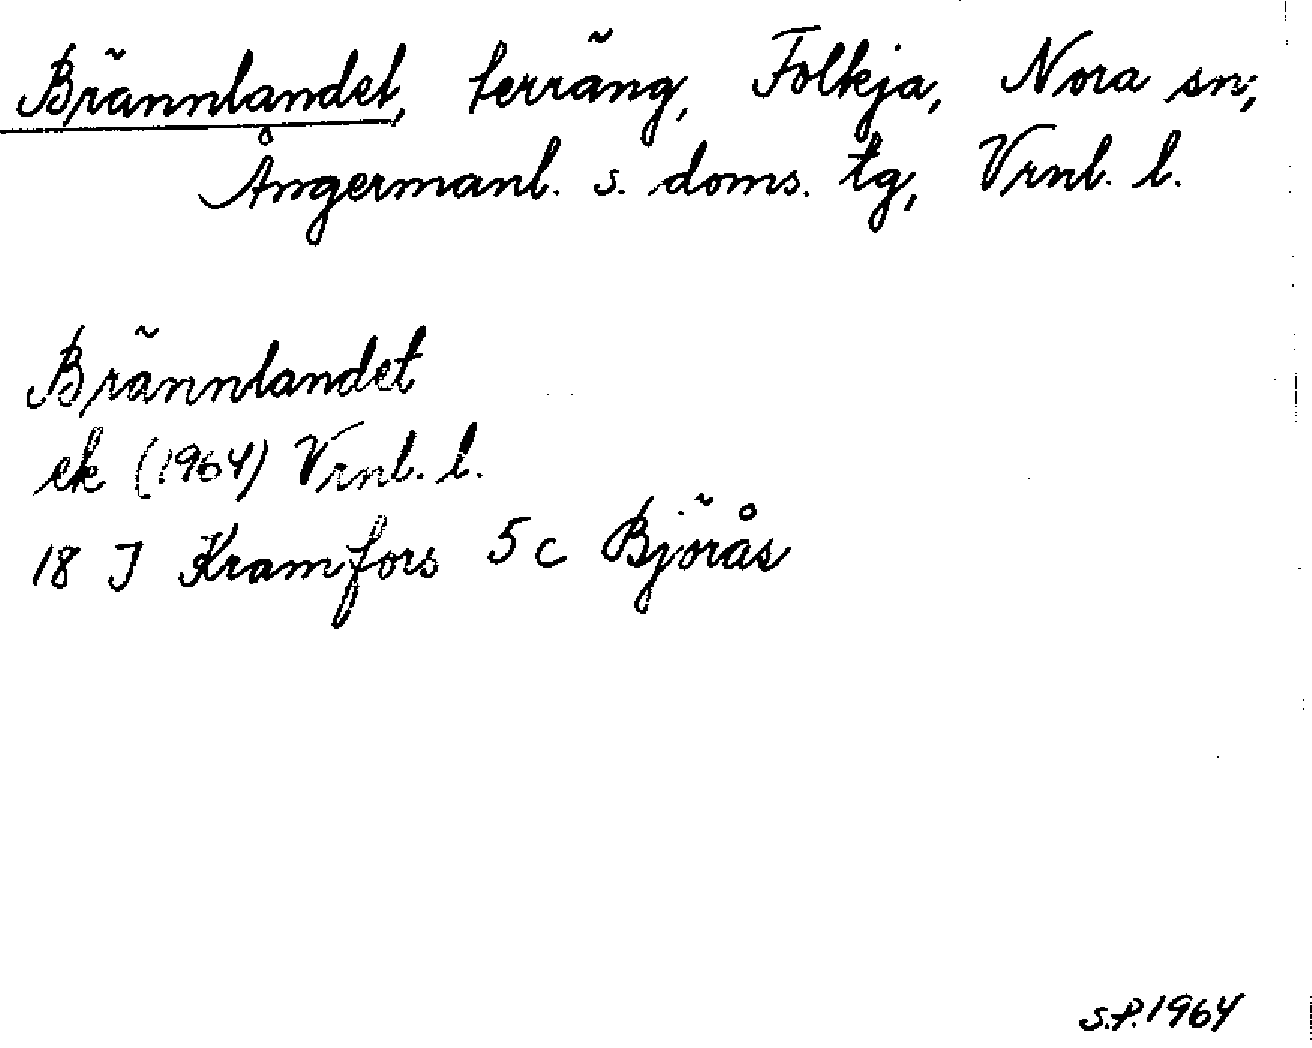 Brännlandet, terräng, Folkja, Nora sn;
Ångermanl. s. doms. tg, Vrnl. l.
Brännlandet
ek (1964) Vrnl. l.
18 J Kramfors 5c Björås
S.P. 1964